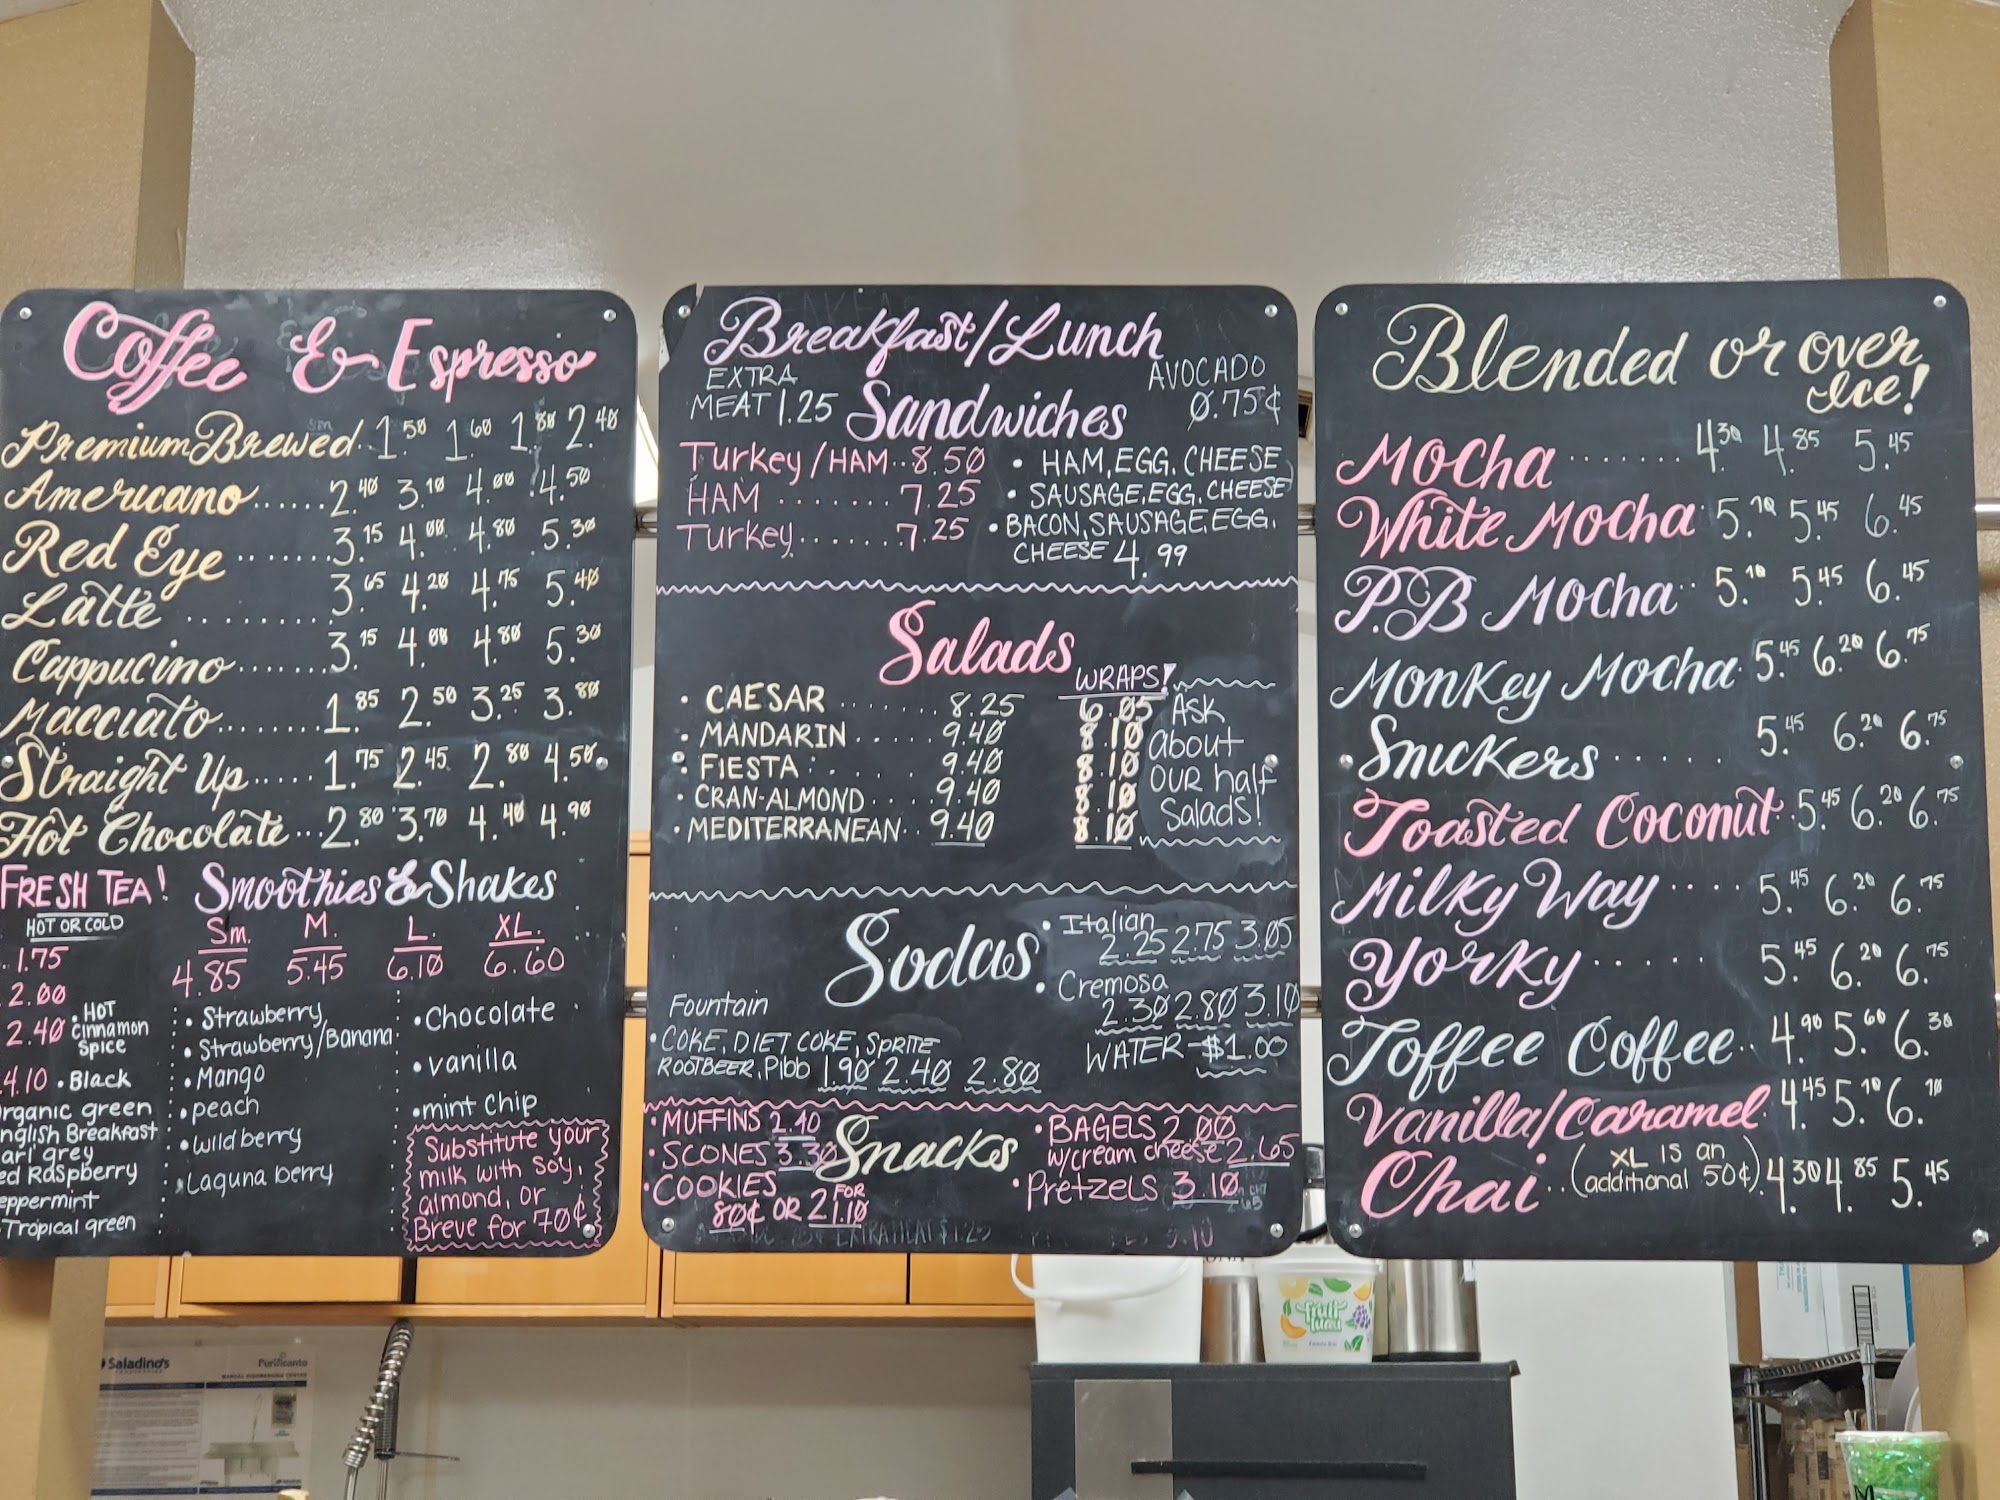 Coffee & Espresso
Premium Brewed. 1.50 1.60 1.80 2.40
Americano...... 2.40 3.10 4.00 4.50
Red Eye ....... 3.15 4.00 4.80 5.30
Latte ......... 3.65 4.20 4.75 5.40
Cappucino....... 3.15 4.00 4.80 5.30
Macciato........ 1.85 2.50 3.25 3.80
Straight Up..... 1.75 2.45 2.80 4.50
Hot Chocolate... 2.80 3.70 4.40 4.90
FRESH TEA!
HOT OR COLD
1.75
2.00
2.40
4.10
• HOT Cinnamon Spice
• Black
green
Breakfast
grey
Raspberry
Tropical green
Smoothies & Shakes
Sm. M. L. XL.
4.85 5.45 6.10 6.60
• Strawberry
• Strawberry/Banana
• Mango
• peach
• wildberry
• Laguna berry
• Chocolate
• vanilla
• mint chip
Substitute your
milk with soy,
almond, or
Breve for 70¢
Breakfast/Lunch
EXTRA
MEAT 1.25
Sandwiches
AVOCADO
0.75¢
Turkey/HAM.. 8.50
HAM ........ 7.25
Turkey....... 7.25
• HAM, EGG, CHEESE
• SAUSAGE, EGG, CHEESE
• BACON, SAUSAGE, EGG,
CHEESE 4.99
Salads
WRAPS!
• CAESAR ........ 8.25 6.05
• MANDARIN ..... 9.40 8.10
• FIESTA ....... 9.40 8.10
• CRAN-ALMOND .... 9.40 8.10
• MEDITERRANEAN.. 9.40 8.10
Ask
about
our half
Salads!
Sodas
• Italian
2.25 2.75 3.05
• Cremosa
2.30 2.80 3.10
WATER-$1.00
Fountain
• COKE, DIET COKE, Sprite
ROOTBEER, Pibb 1.90 2.40 2.80
Snacks
• MUFFINS 2.40
• SCONES 3.30
• COOKIES
80¢ OR 2 FOR 1.10
• BAGELS 2.00
w/cream cheese 2.65
• Pretzels 3.10
Blended or over
Ice!
Mocha ....... 4.30 4.85 5.45
White Mocha 5.10 5.45 6.45
P.B Mocha .. 5.10 5.45 6.45
Monkey Mocha. 5.45 6.20 6.75
Snickers ..... 5.45 6.20 6.75
Toasted Coconut. 5.45 6.20 6.75
Milky Way .... 5.45 6.20 6.75
Yorky ..... 5.45 6.20 6.75
Toffee Coffee.. 4.90 5.60 6.30
Vanilla/Caramel 4.45 5.10 6.10
Chai.. (XL is an additional 50¢). 4.30 4.85 5.45
Saladino's
Purificante
fruit